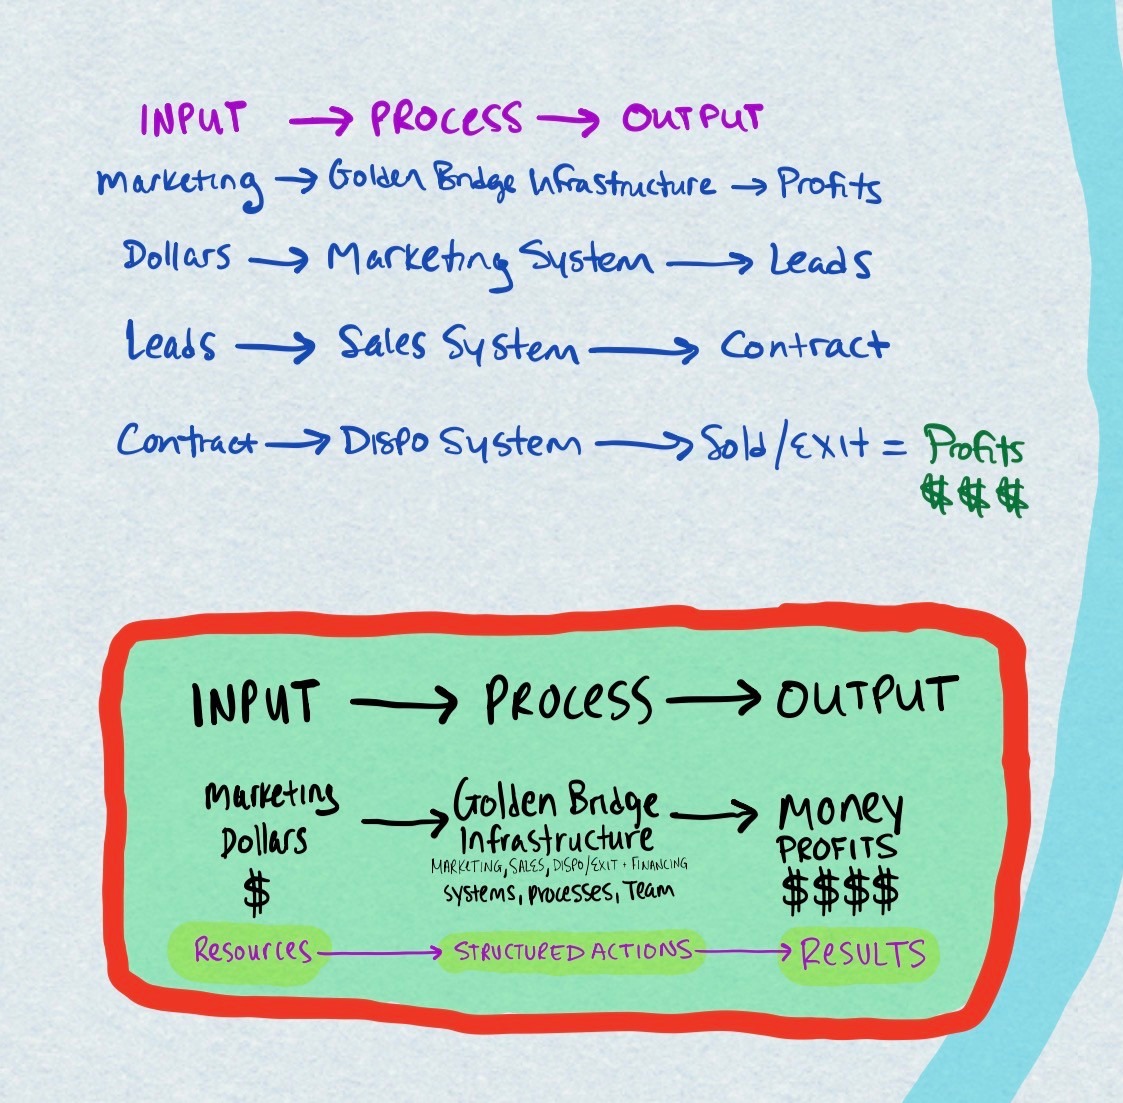 INPUT → PROCESS → OUTPUT
Marketing → Golden Bridge Infrastructure → Profits
Dollars → Marketing System → Leads
Leads → Sales System → Contract
Contract → Dispo System → Sold/Exit = Profits
$ $ $
INPUT → PROCESS → OUTPUT
Marketing Dollars → Golden Bridge Infrastructure → Money
PROFITS
MARKETING, SALES, DISPO/EXIT + FINANCING
$ systems, processes, Team $$$$
Resources → STRUCTURED ACTIONS → RESULTS